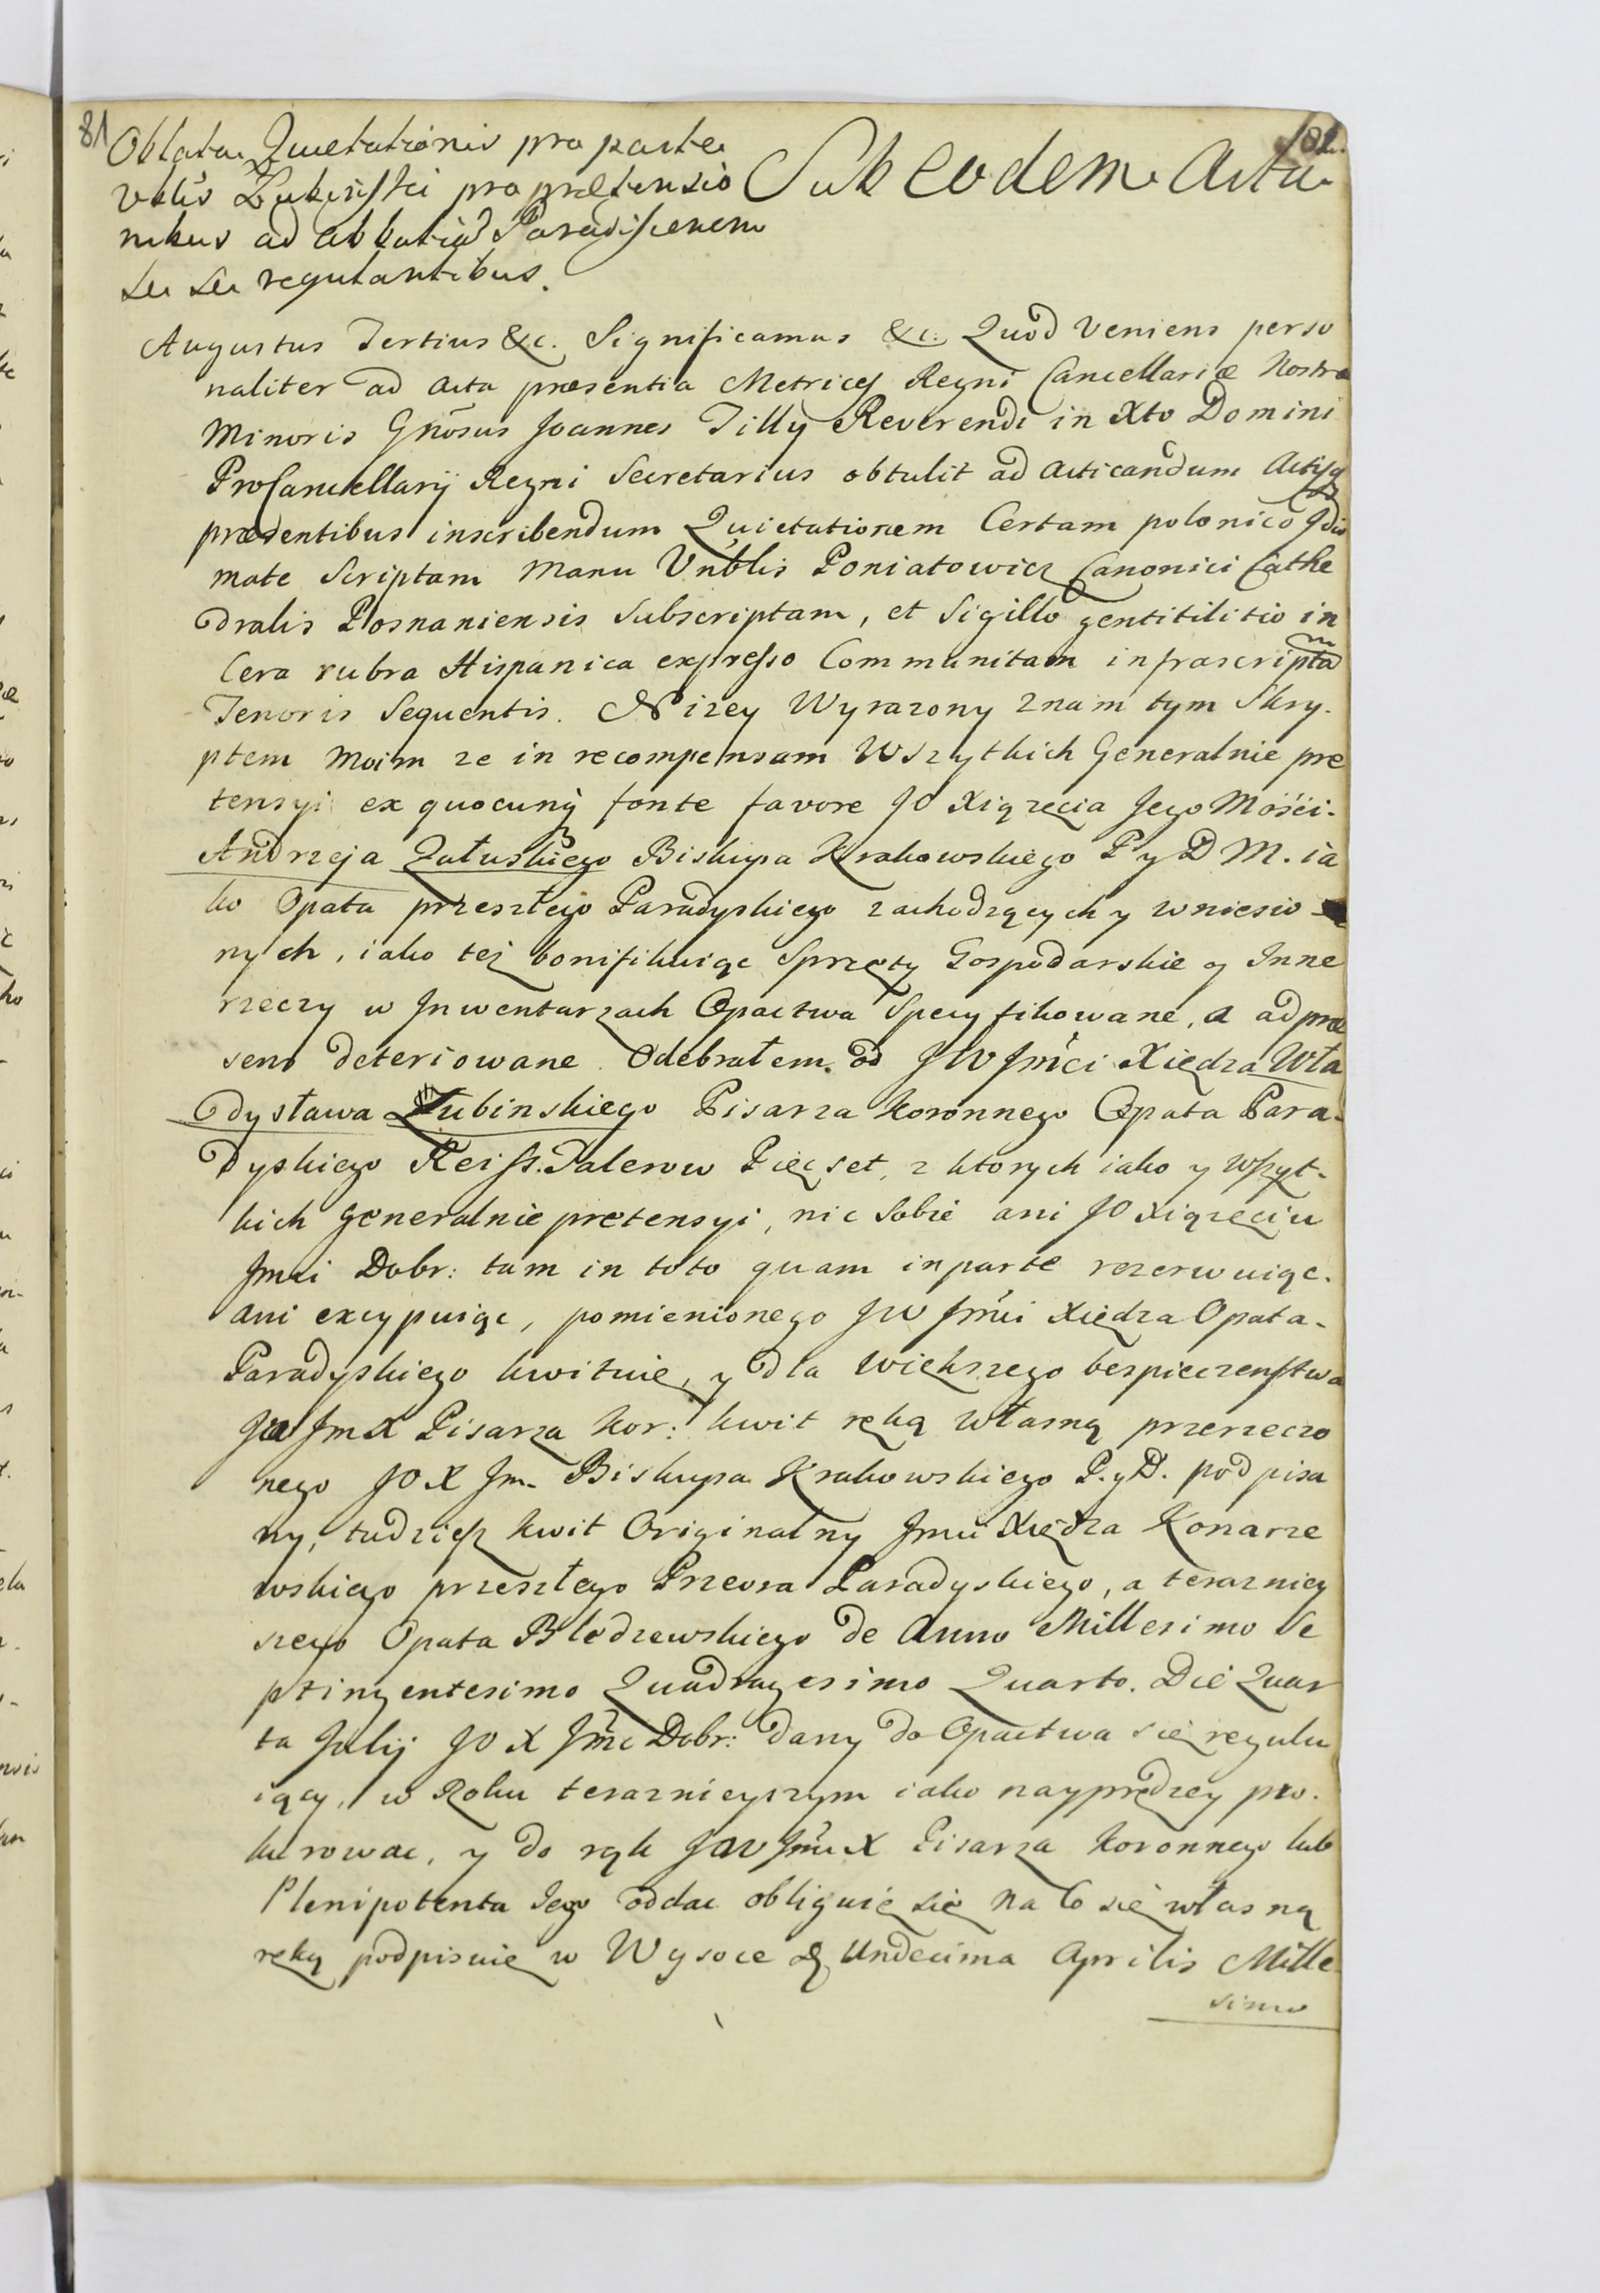 81
Oblata Quietationis pro parte
Vblis Łubinski pro prætensio
nibus ad Abbatia Paradisienem
se se regulantibus.
Sub eodem Actu
Augustus Tertius &c. Significamus &c: Quod Veniens perso
naliter ad Acta præsentia Metrices Regni Cancellariæ Nostræ
Minoris Gnōsus Joannes Tilly Reverendi in Xto Domini
ProCancellarÿ Regni Secretarius obtulit ad Acticandum Actisq
præsentibus inscribendum Quietationem Certam polonico Jdio
mate Scriptam Manu Vnblis Poniatowicz Canonici Cathe
dralis Posnaniensis Subscriptam, et Sigillo gentitilitio in
Cera rubra Hispanica expresso Communitam infrascripta
Tenoris Sequentis. Nizey Wyrazony znam tym Skry-
ptem Moim ze in recompensam Wszytkich Generalnie pre
tensyi ex quocunq fonte favore JO Xiązęcia Jego Mości-
Andrzeja Załuskiego Biskupa Krakowskiego P y D M. ia
ko Opata przeszłego Paradyskiego zachodzących y wniesio
nych, iako też bonifikuiąc Sprzęty Gospodarskie y Inne
rzeczy w Jnwentarzach Opactwa Specyfikowane, a ad præ
sens deteriowane Odebrałem od JW Jmci Xiędza Wła
dysława Łubinskiego Pisarza Koronnego Opata Para-
dyskiego Reiss. Talerow Pięcset, z ktorych iako y Wszyt-
kich generalnie pretensyi, nic Sobie ani JO Xiązęciu
Jmci Dobr: tam in toto quam in parte rezerwuiąc.
ani excypuiąc, pomienionego JW Jmci Xiędza Opata-
Paradyskiego kwituię, y dla większego bezpieczenstwa
JW JmX Pisarza Kor: kwit ręką własną przerzeczo
nego JO X Jm- Biskupa Krakowskiego P. y D. podpisa
ny, tudziesz kwit Originalny Jmci Xiędza Konarze
wskiego przeszłego Przeora Paradyskiego, a terazniey
szego Opata Bledzewskiego de Anno Millesimo Se
ptingentesimo Quadragesimo Quarto. Die Quar
ta Julij JO X Jmc Dobr: dany do Opactwa się regulu
iący, w Roku teraznieyszym iako nayprędzey pro-
kurowac, y do rąk JW Jmci X Pisarza Koronnego lub
Plenipotenta Jego oddac obliguię się na Co się własną
ręką podpisuię w Wysoce d Undecima Aprilis Mille
simo